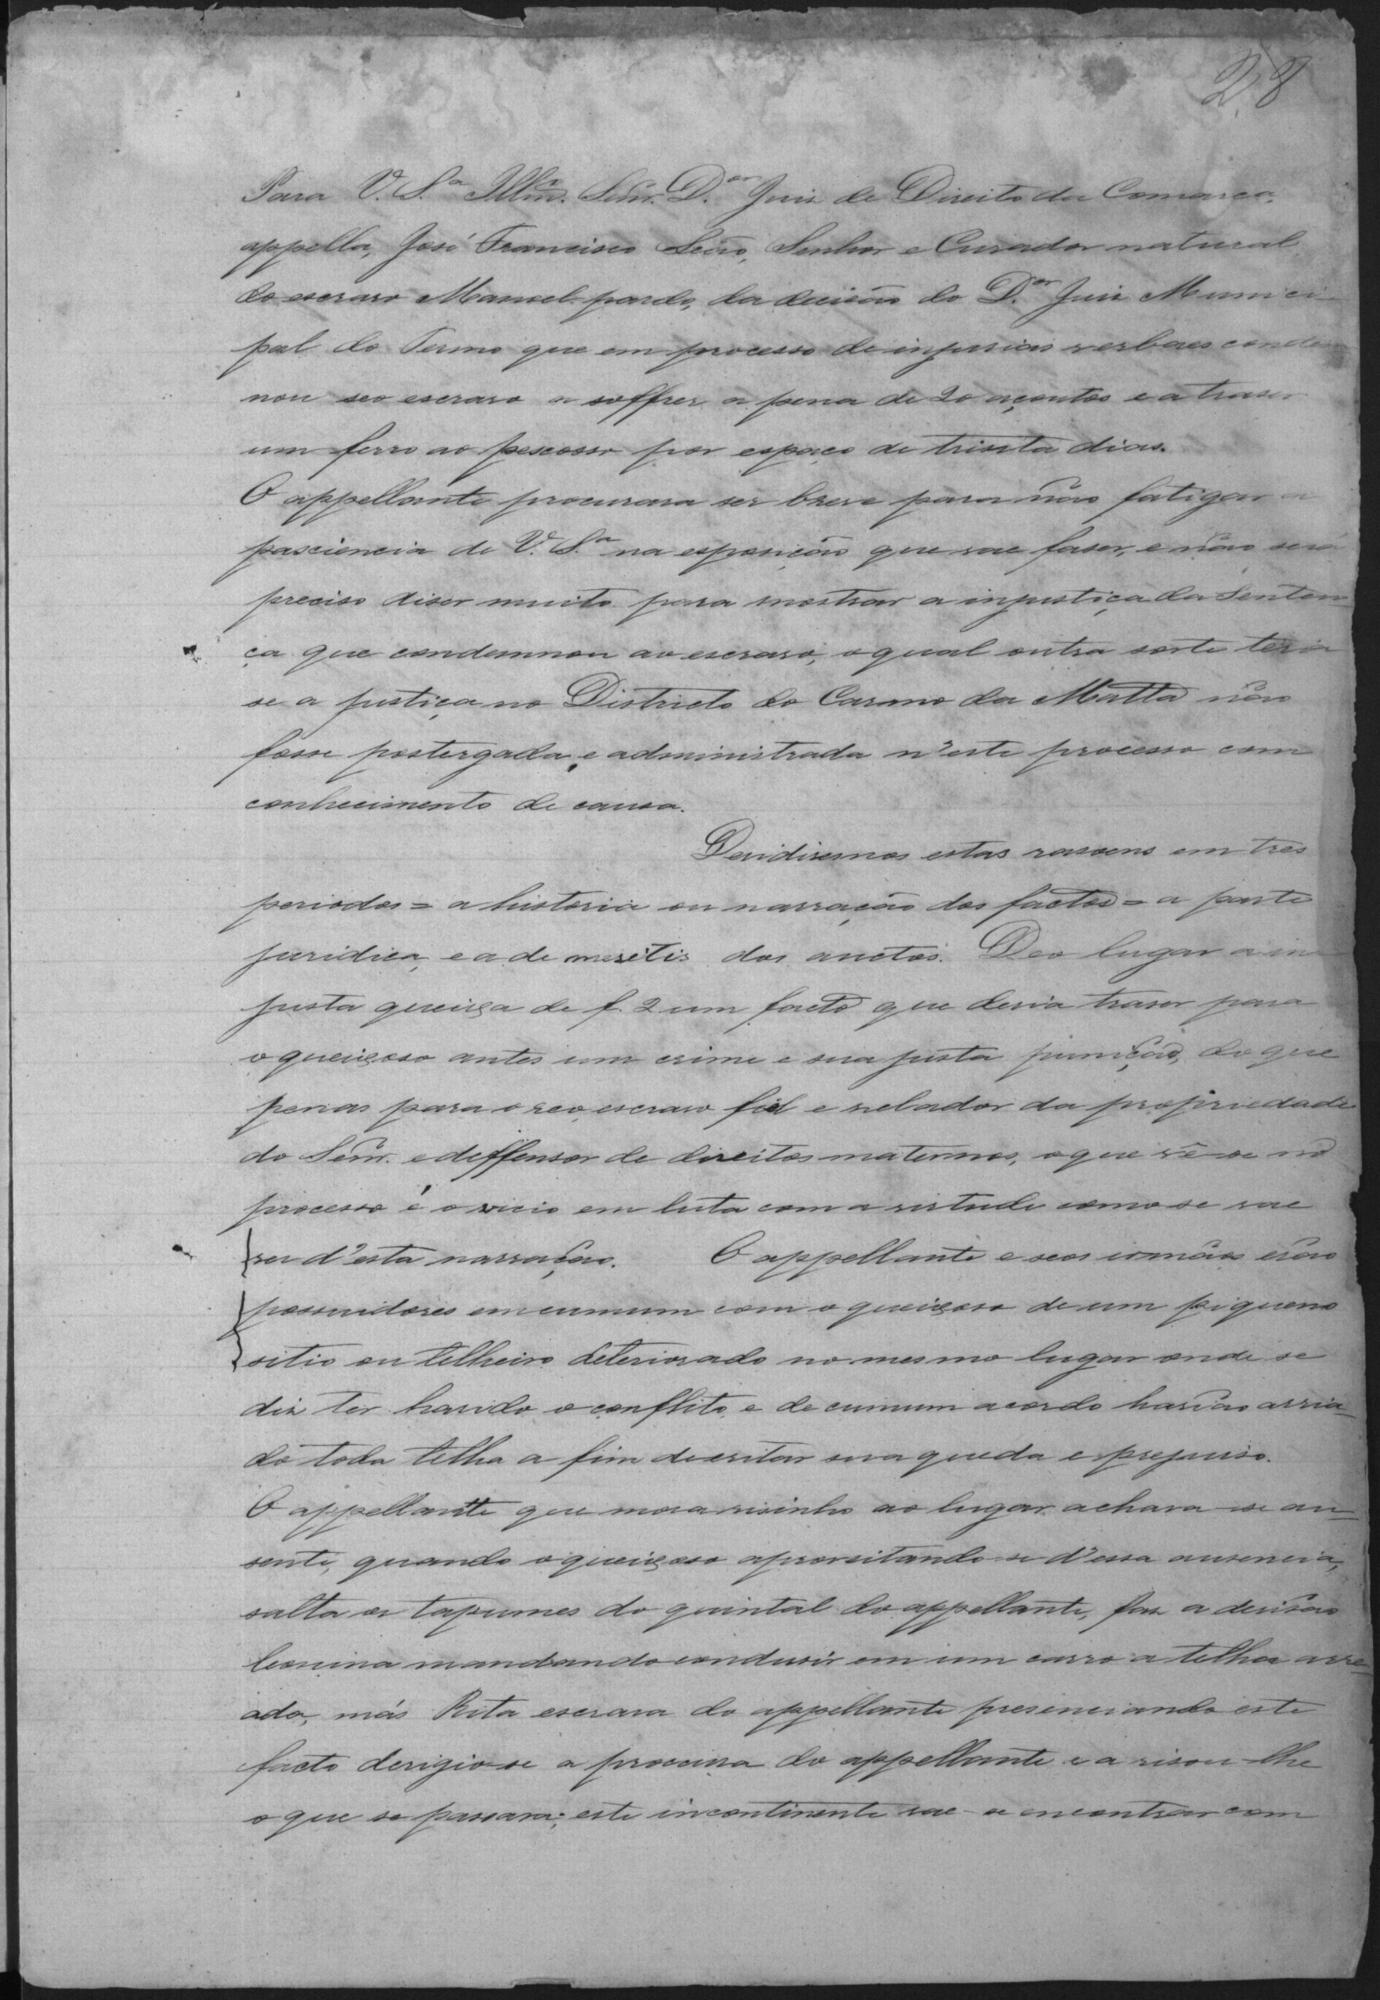 28
Para V. S.ª Illm.º Senr. D.or Juis de Direito da Comarca,
appella, José Francisco Leão, Senhor e Curador natural
do escravo Manoel pardo, da decisão do D.or Juis Munici-
pal do Termo que em processo de injurias verbaes condem
nou seo escravo a soffrer a pena de 20 açoutes e a traser
um ferro ao pescosso por espaço de trinta dias.
O appellante procurara ser breve para não fatigar a
pasciencia de V. S.ª na esposição que vae faser, e não será
preciso diser muito para mostrar a injustiça da Senten-
ça que condemnou ao escravo, o qual outra sorte teria
se a justiça no Districto do Carmo da Matta não
fosse postergada, e administrada n'este processo com
conhecimento de causa.
Devidiremos estas rasoens em tres
periodos = a historia ou narração dos factos = a parte
juridica, e a de meretis dos auctos. Deo lugar a in
justa queixa de f. 2 um facto que devia traser para
o queixoso antes um crime e sua justa punição, do que
penas para o reo, escravo fiel e velador da propriedade
do Senr. e deffensor de direitos maternos, o que vê-se no
processo é o vicio em luta com a virtude como se vae
ver d'esta narração. O appellante e seos irmãos erão
possuidores em cumum com o queixoso de um piqueno
sitio ou telheiro deteriorado no mesmo lugar onde se
diz ter havido o conflito, e de cumum acordo havião arria-
do toda telha a fim de evitar sua queda e prejuiso.
O appellante que mora visinho ao lugar achava-se au-
sente, quando o queixoso aproveitando-se d'essa ausencia,
salta os tapumes do quintal do appellante, fas a devisão
leonina mandando condusir em um carro a telha arre-
ada, más Rita escrava do appellante presenciando este
facto derigio-se a procura do appellante e avisou-lhe
o que se passara; este incontinente vae-se encontrar com